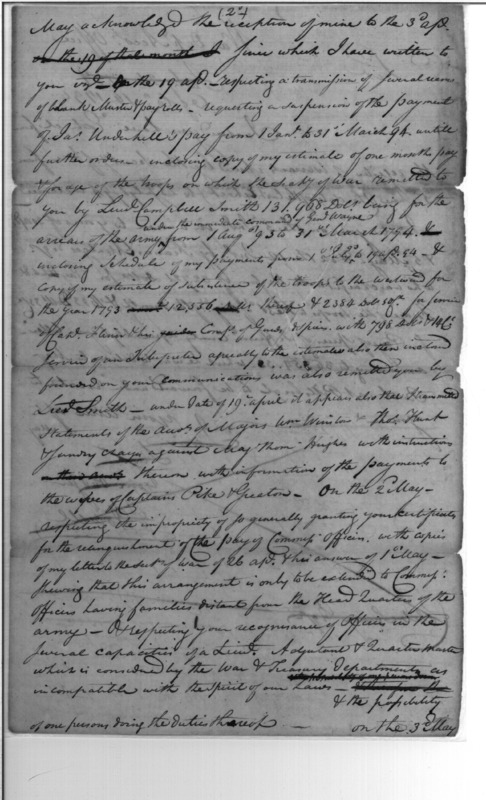 (2)
May acknowledged the reception of mine to the 3d apl.
in the 19 of that month I since which I have written to
you on the 19 apl. respecting a transmission of several
of blank Muster & payrolls - requesting a suspension of the payment
of Jas. Underhill's pay from 1 Jany. to 31st March 94. untill
further orders inclosing copy of my estimate of one months pay
& forage of the troops on which the Secty of War remitted to
you by Lieut Campbell Smith 131,968 Dlls being for the
under the immediate command of Genl Wayne
arrears of the army from 1 Augt. 93 to 31st March 1794. &
inclosing Schedule of my payments from 1 to 19 apl. 94 - &
copy of my estimate of subsistence of the troops to the westward for
the year 1793 12,556 & 2384 Dlls for services
of Capt. & his Compy of Guides & spies. with 798 Dlls &
service of an Interpreter agreeably to the estimates also then inclosed
forwarded on your communications was also remitted you by
Lieut Smith - under date of 19 april it appears also that I transmitted
statements of the accts. of Majors Wm Winston Thos. Hunt
& sundry against Majr Thom. Hughes with instructions
thereon with information of the payments to
the wives of Captains Pike & Preston - On the 2 May -
respecting the impropriety of so generally granting your certificates
for the relinquishment of the pay of Commd. officers. with copies
of my letter to the Secty of war of 26 apl. & his answer of 1st May -
shewing that this arrangement is only to be extended to Commd.
officers having families distant from the Head Quarters of the
army - & respecting your recognisance of officers in the
several capacities of a Lieut, Adjutant & Quarter Master
which is considered by the War & Treasury Departments as
incompatible with the spirit of our Laws -
& the possibility
of one persons doing the duties thereof - on the 3d May